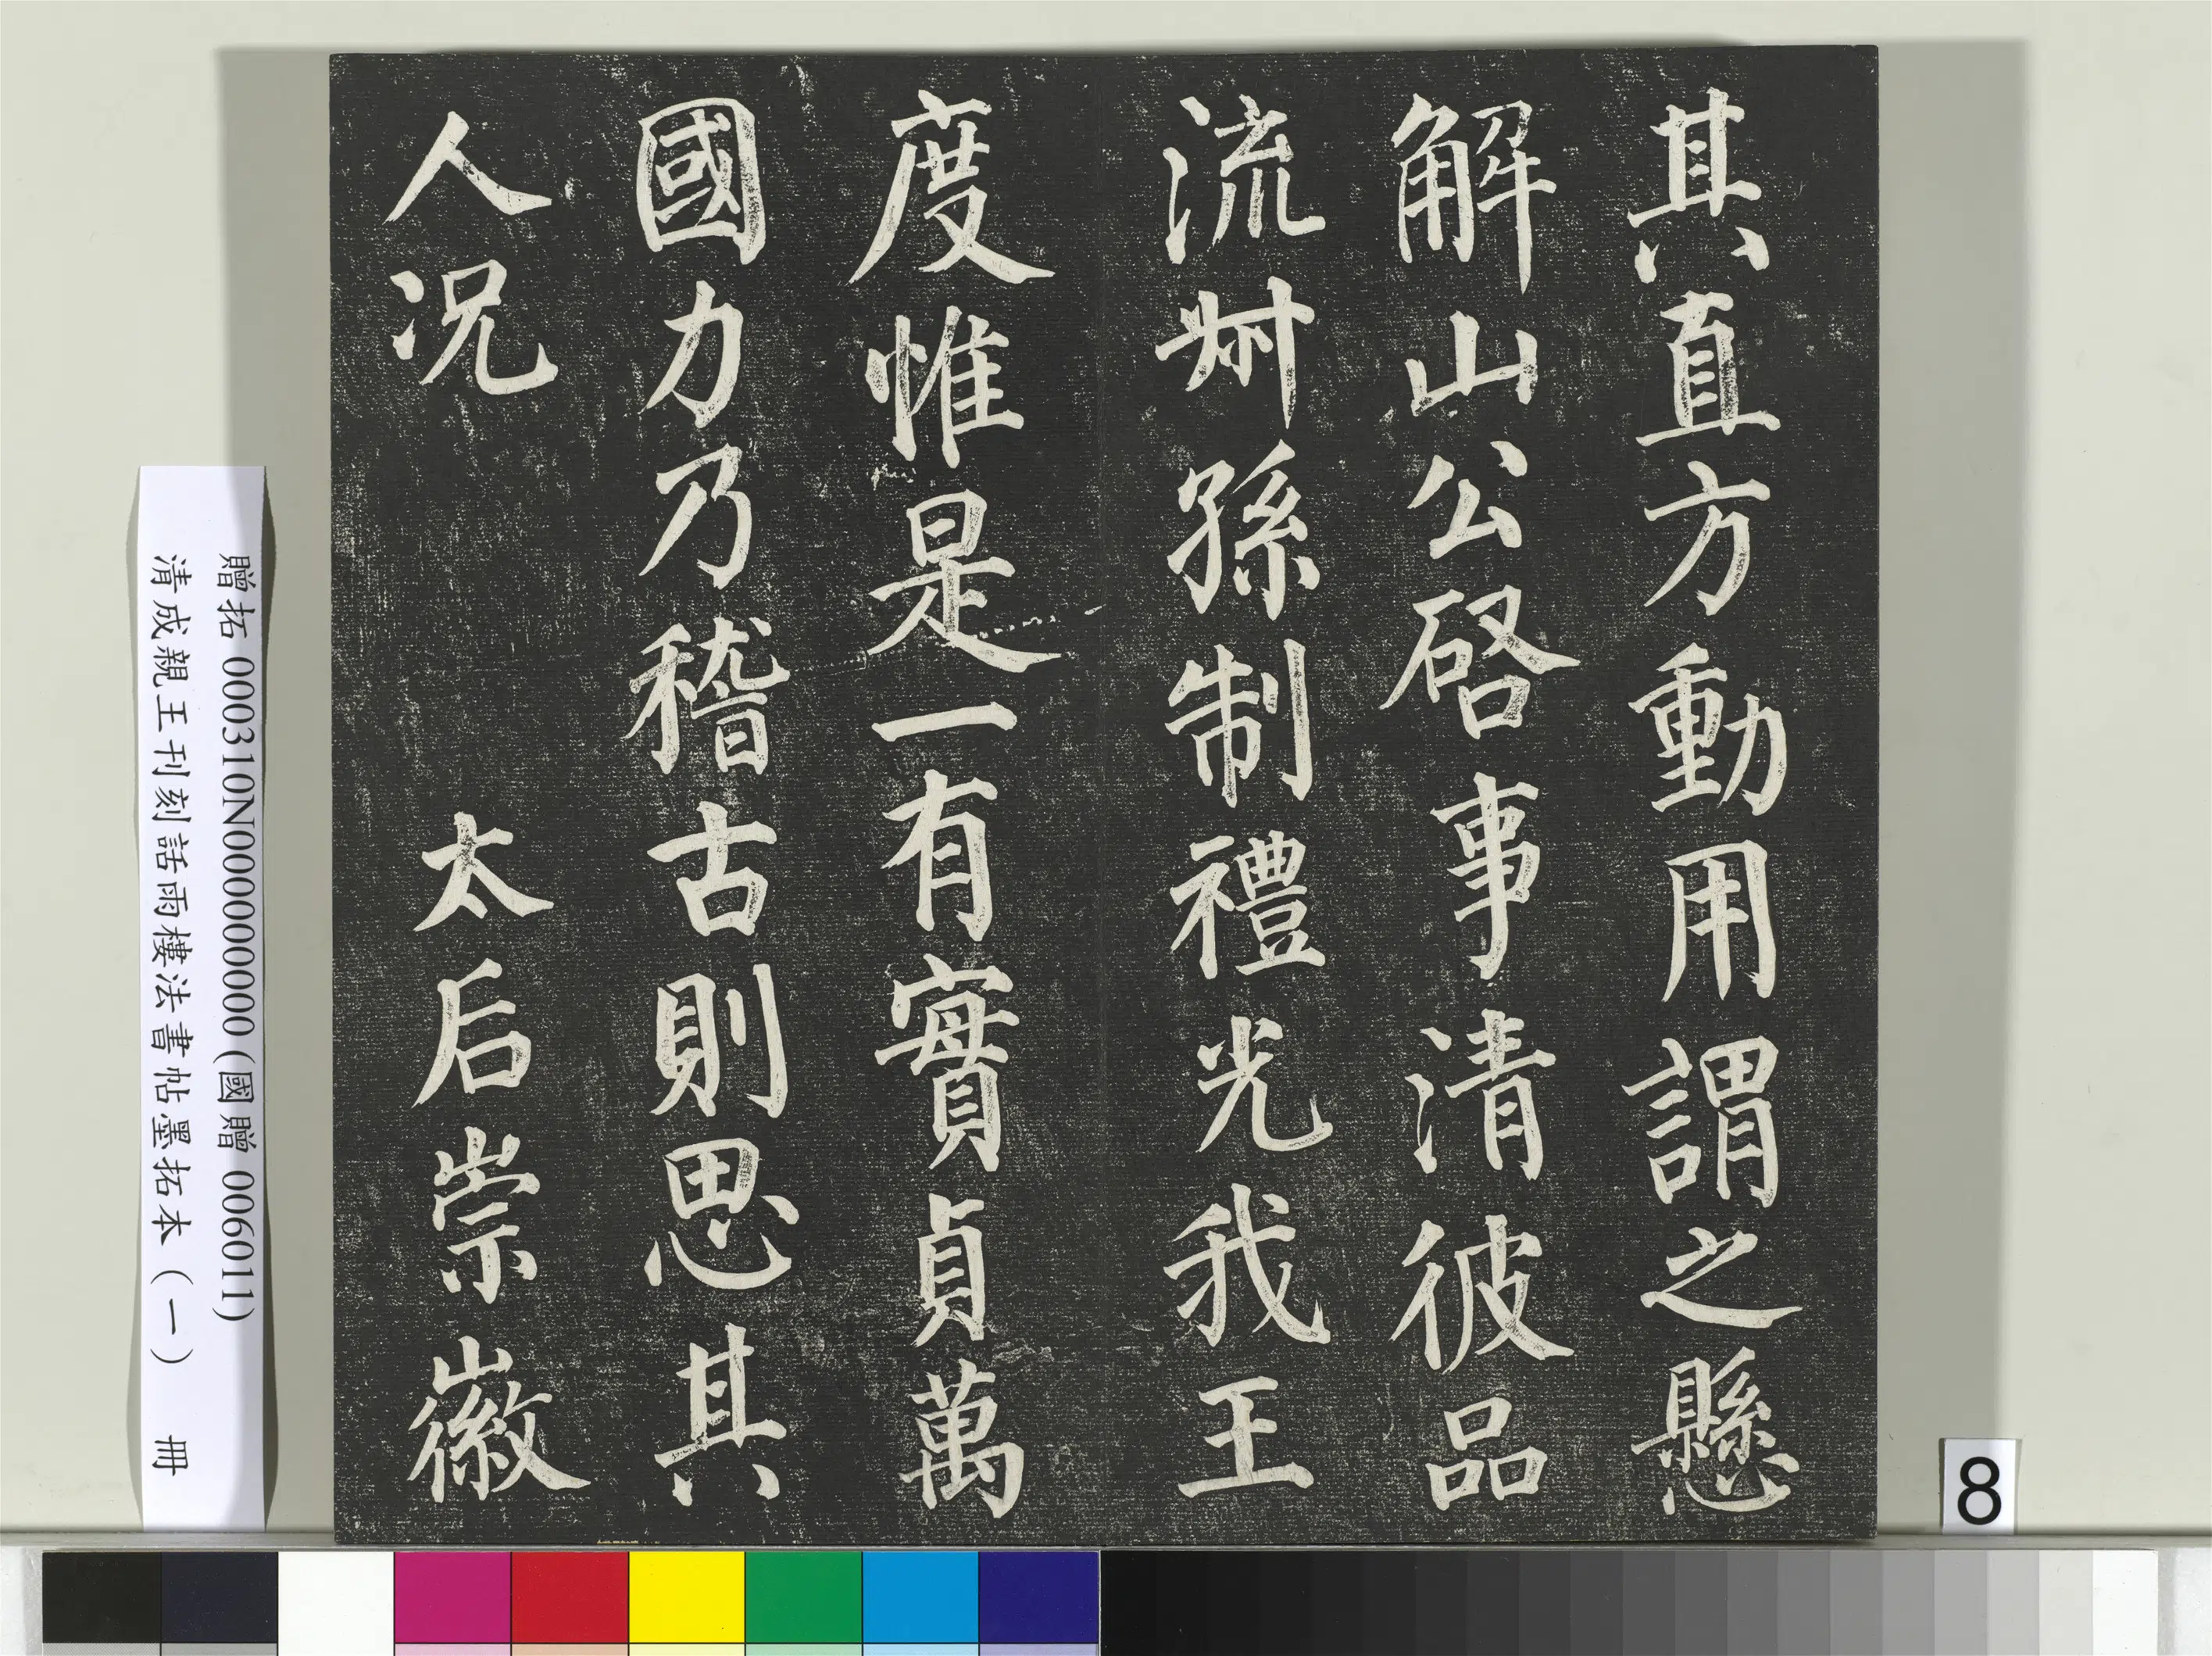 其直方動用謂之懸
解山公啓事清彼品
流叔孫制禮光我王
度惟是一有實貞萬
國力乃稽古則思其
人況 太后崇徽
贈拓 000310N000000000 (國贈 006011)
清成親王刊刻話雨樓法書帖墨拓本（一） 冊
8